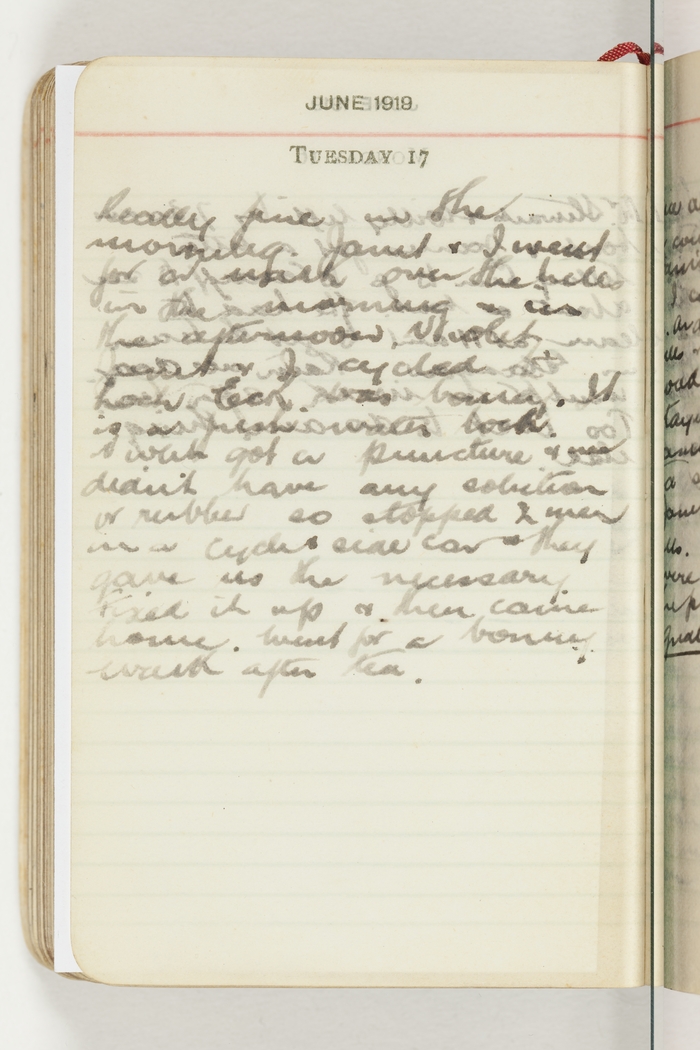 JUNE 1919
TUESDAY 17
fine in the
morning. Janet & I went
for a walk over the hills
in the morning & in
the afternoon. Violet
& I cycled to
Loch Eck. was bonny. It
is a fresh water loch.
& wee got a puncture &
didn't have any solution
or rubber so stopped 2 men
in a cycle & side car & they
gave us the necessary
fixed it up & then came
home. Went for a bonny
walk after tea.